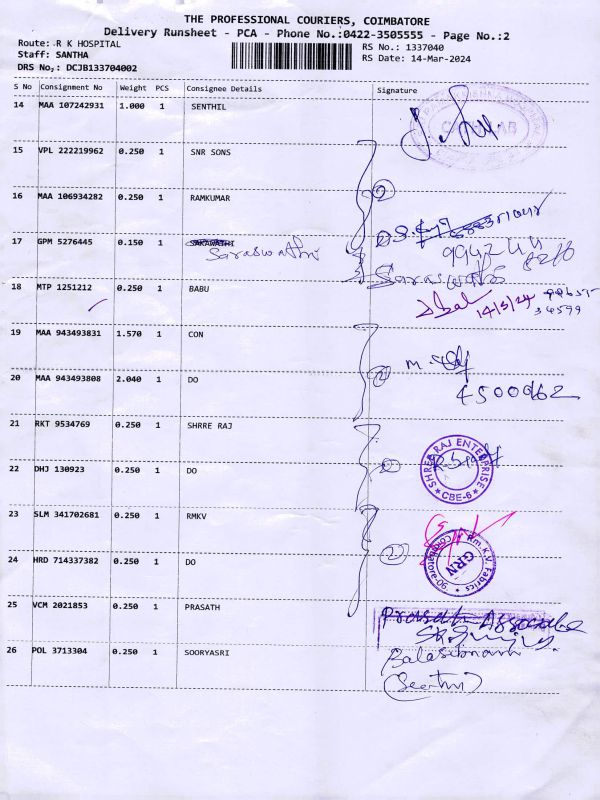 THE PROFESSIONAL COURIERS, COIMBATORE
Delivery Runsheet - PCA - Phone No.:0422-3505555 - Page No.:2
Route: R K HOSPITAL
RS No.: 1337040
Staff: SANTHA
RS Date: 14-Mar-2024
DRS No,: DCJB133704002
S No Consignment No Weight PCS Consignee Details Signature
14 MAA 107242931 1.000 1 SENTHIL
15 VPL 222219962 0.250 1 SNR SONS
16 MAA 106934282 0.250 1 RAMKUMAR
2
17 GPM 5276445 0.150 1 SARAVATHI
Saraswathi
99424 44
18 MTP 1251212 0.250 1 BABU
14/3/24
34599
19 MAA 943493831 1.570 1 CON
20 MAA 943493808 2.040 1 DO
2
4500962
21 RKT 9534769 0.250 1 SHRRE RAJ
22 DHJ 130923 0.250 1 DO
2
SHREE RAJ ENTERPRISE
CBE-6
23 SLM 341702681 0.250 1 RMKV
24 HRD 714337382 0.250 1 DO
2
Rm. K.V. Fabrics
GRN
25 VCM 2021853 0.250 1 PRASATH
Prasath Associate
26 POL 3713304 0.250 1 SOORYASRI